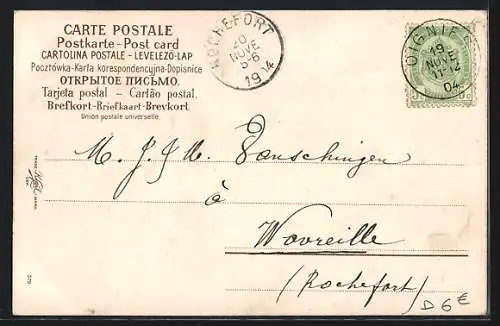 CARTE POSTALE
Postkarte - Post card
CARTOLINA POSTALE - LEVELEZŐ-LAP
Pocztówka - Karta korespondencyjna - Dopisnice
ОТКРЫТОЕ ПИСЬМО.
Tarjeta postal - Cartão postal.
Brefkort - Briefkaart - Brevkort.
Union postale universelle.
ROCHEFORT
20
NOVE
5-6
1904
OIGNIES
19
NOVE
11-12
04
M. J. M. Tanschingen
à
Wavreille
(Rochefort)
D 6 €